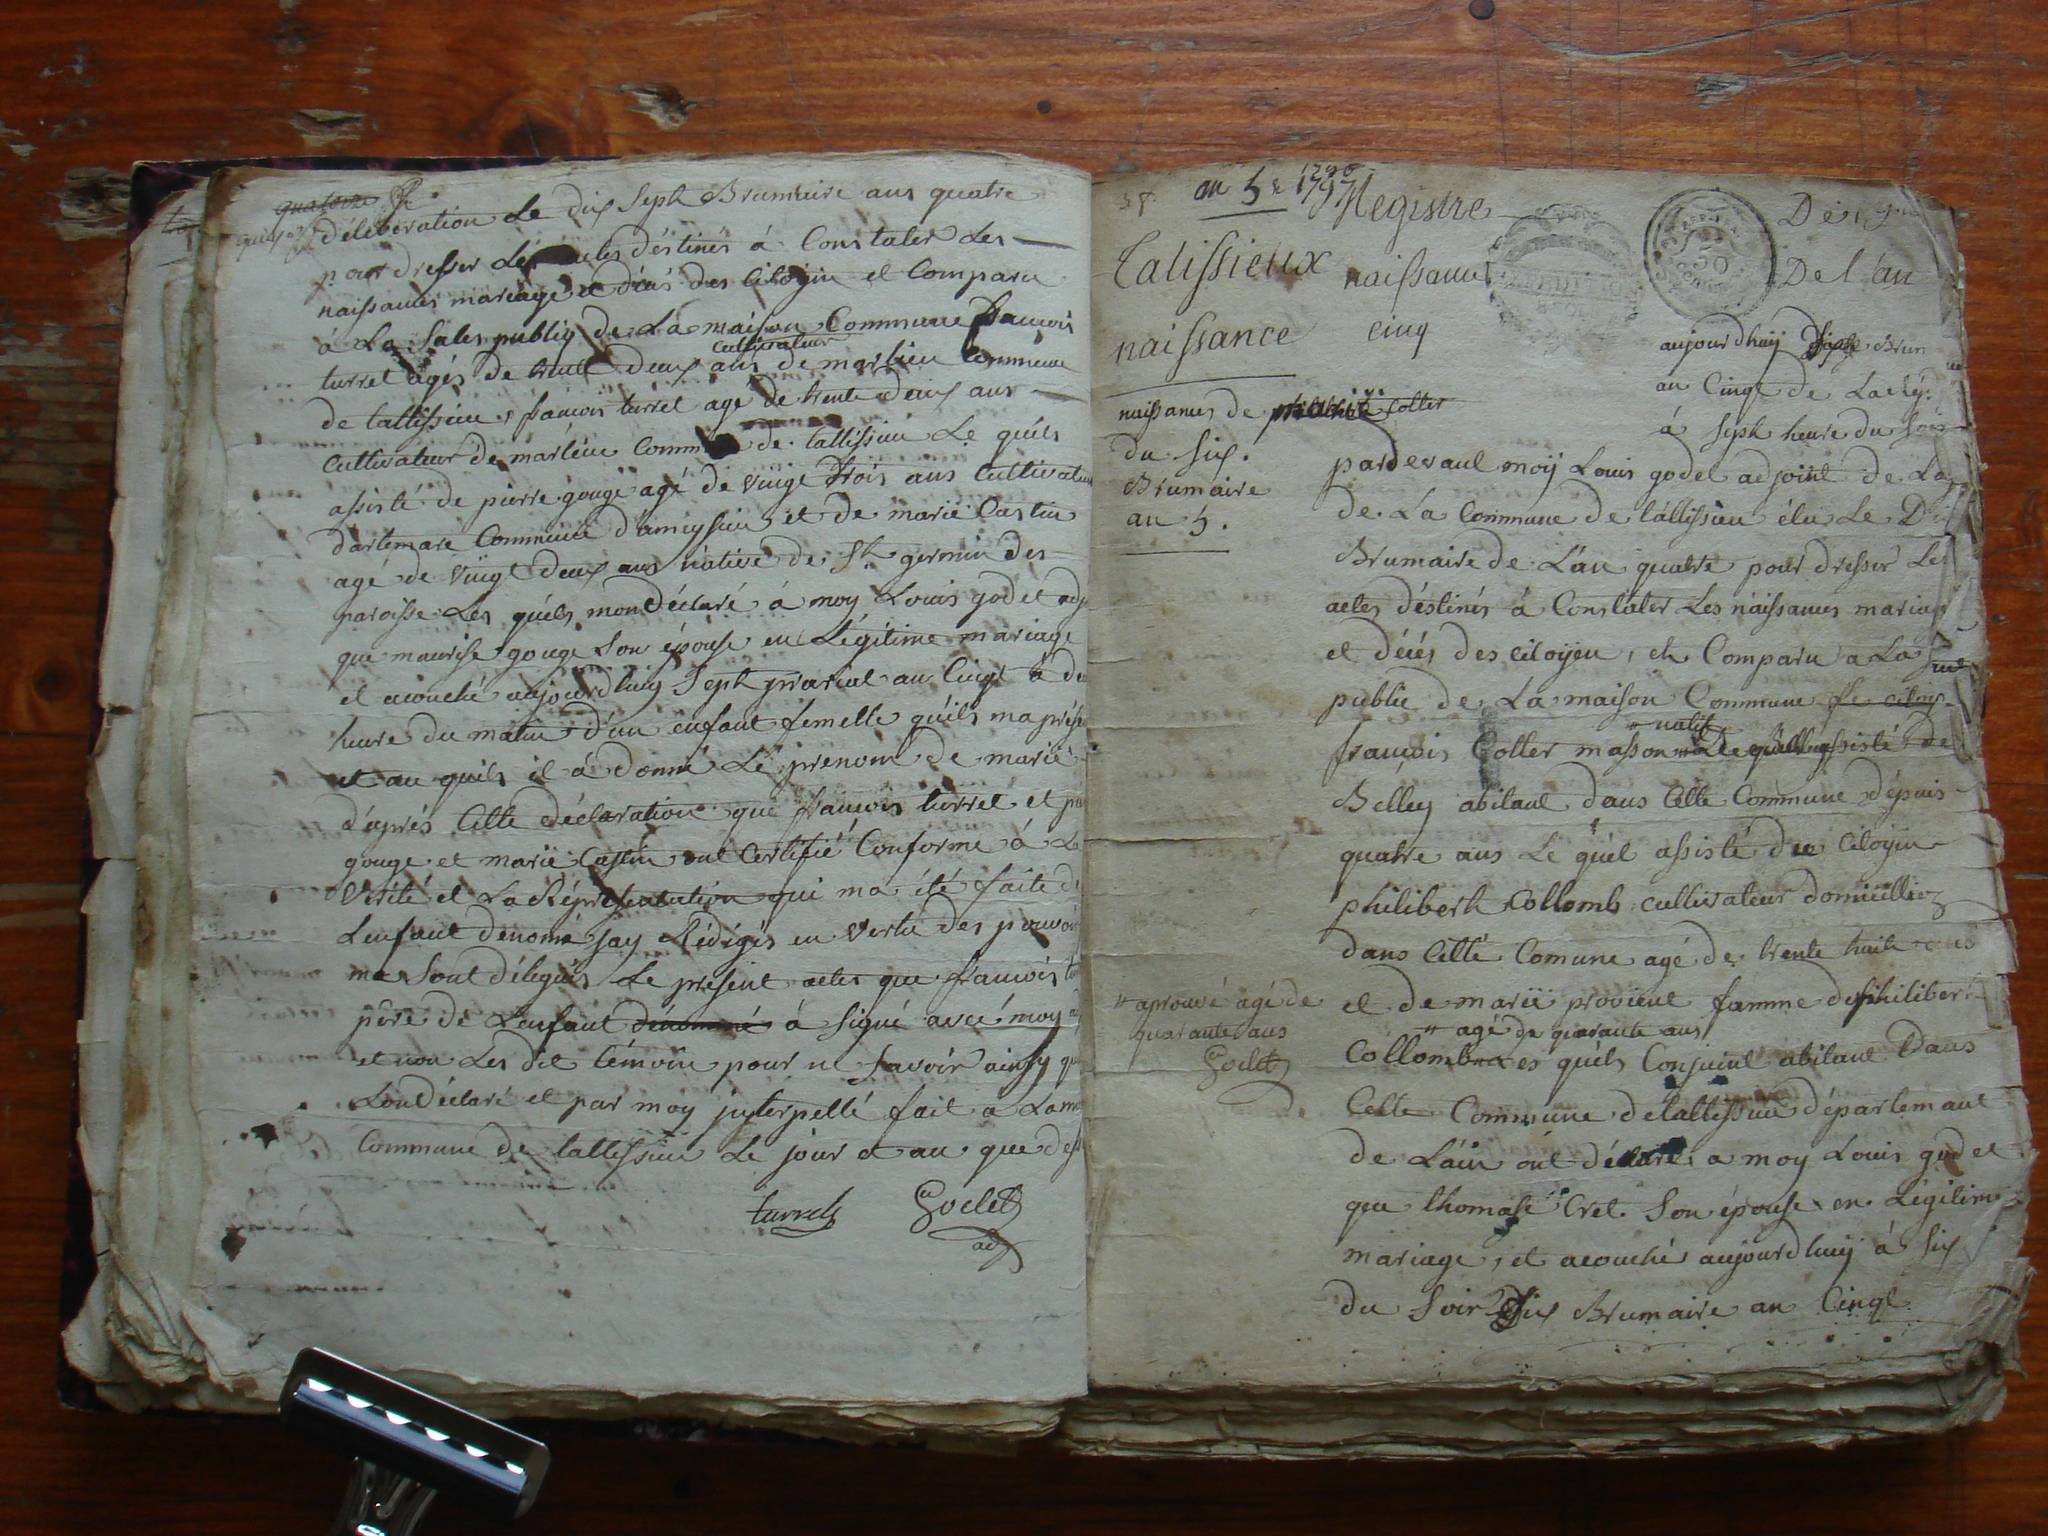 délibération Le dix Sept Brumaire ans quatre
pour dresser Les actes déstinés á Constater Les
naissances mariage et déces des Citoyin et Comparu
á La Sales publiq de La maison Commune francois
cultivateur
turrel agés de trente deux ans de marlieu Commune
de tallissieu, francois turrel agé de trente deux ans
Cultivateur de marlieu Commune de tallissieu Le quels
assisté de pierre gouge agé de vingt trois ans Cultivateur
dartemare Commune d'ameyssieu et de marië Castin
agé de vingt deux ans native de St germin des
paroisse Les quels mon Déclaré á moy Louis godet adj
que maurise gouge Son épouse en Légitime mariage
et acouché aujourdhuy Sept prairial an Cinqt á
heure du matin d'un enfant femelle quils ma prése
et au quils il á donné Le prenom de marië
d'aprés Cette déclaration que francois turrel et
gouge et marië Castin ont Certifié Conforme á La
Vérité et La Réprésentation qui ma été faite d
Lenfant dénomé Jay Rédigés en Vertu des pouvoir
me Sont délegués Le présent actes que francois
pére de Lenfant dénommé á Signé avec moy
et non Les dit témoin pour n Savoir ainsy qu
Lon Déclaré et par moy interpellé fait á La
Commune de tallissieu Le jour et an que
turrel Godet
adj
an 5e 1797 Registre
1796
De
Talissieux naissance De l'an
naissance cinq
aujourdhuy Brum
an Cinqt de La Rép
á Sept heure du Soir
naissances de Coller
du six.
Brumaire
an 5.
pardevant moÿ Louis godet adjoint de La
de La Commune de tallissieu élu Le Di
Brumaire de L'an quatre pour dresser Les
actes déstinés á Constater Les naissances mariage
et décés des citoyen, et Comparu a La Sale
public de La maison Commune Le citoy
natif
francois Coller masson assisté de
Belley abitant dans Cette Commune dépuis
quatre ans Le quel assisté du Citoyin
philibert Collomb cultivateur domicilliez
dans Cette Comune agé de trente huit ans
et de marië provient famme de philibert
" agé de quarante ans
Collomb Les quels Conjoint abitant Dans
" aprouvé agé de
quarante ans
Godet
Cette Commune de tallissieu départemant
de L'ain ont déclaré a moy Louis godet
que thomase Cret Son épouse en Légitime
mariage, et acouché aujourdhuÿ á Six
du Soir Six Brumaire an Cinqt